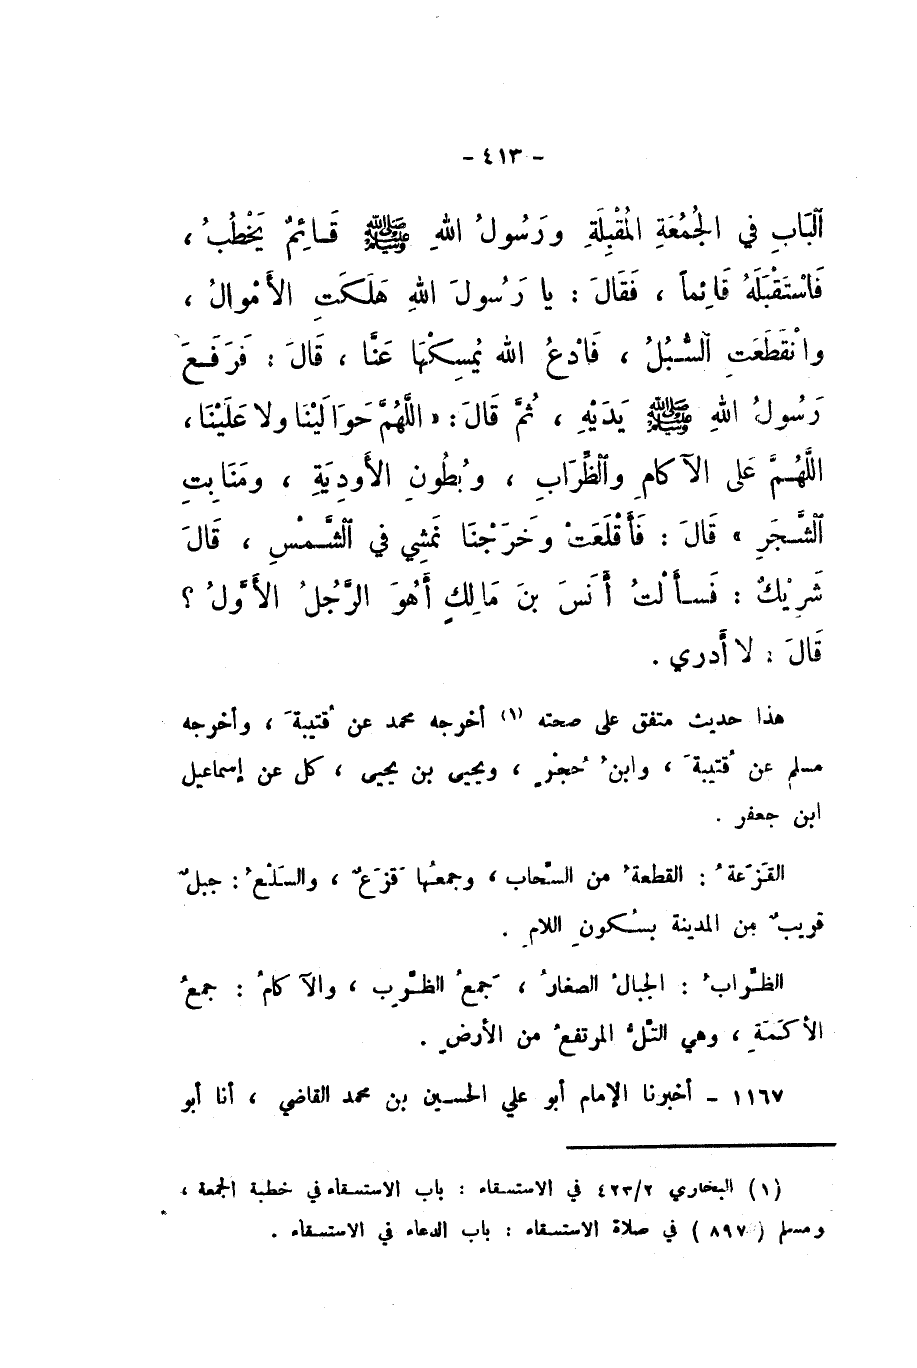 - ٤١٣ -
ٱلْبَابِ في الجُمُعَةِ المُقْبِلَةِ ورَسُولُ اللهِ ﷺ قَـائِمٌ يَخْطُبُ ،
فَاسْتَقْبَلَهُ قَائِماً ، فَقَالَ : يا رَسُولَ اللهِ هَلَكَتِ الأَمْوالُ ،
وانْقَطَعَتِ ٱلسُّبُلُ ، فَادعُ الله يُمسِكْهَا عَنَّا ، قَالَ : فَرَفَعَ
رَسُولُ اللهِ ﷺ يَدَيْهِ ، ثُمَّ قَالَ : « اللَّهُمَّ حَوَالَيْنَا ولا عَلَيْنَا ،
اللَّهُـمَّ عَلى الآكامِ والظِّرَابِ ، وبُطُونِ الأَودِيَةِ ، ومَنَابِتِ
ٱلشَّـجَرِ » قَالَ : فَأَقْلَعَتْ وخَرَجْنَا نَمشِي في ٱلشَّـمْسِ ، قَالَ
شَرِيْكٌ : فَسـأَلْتُ أَنَسَ بنَ مَالِكٍ أَهُوَ الرَّجُلُ الأَوَّلُ ؟
قَالَ : لا أَدري .
هذا حديث متفق على صحته (١) أخرجه محمد عن قُتيبةَ ، وأخرجه
مسلم عن قُتيبةَ ، وابنُ حُجْرٍ ، ويحيى بن يحيى ، كل عن إسماعيل
ابن جعفر .
القَزَعةُ : القطعةُ من السَّحاب ، وجمعُها قَزَعٌ ، والسَلْعُ : جبلٌ
قريبٌ مِن المدينة بسُكونِ اللامِ .
الظِّرابُ : الجبالُ الصغارُ ، جَمعُ الظَّرِبِ ، والآكامُ : جمعُ
الأكَمَةِ ، وهي التَّلُّ المرتفعُ من الأرضِ .
١١٦٧ - أخبرنا الإمام أبو علي الحسـين بن محمد القاضي ، أنا أبو
(١) البخاري ٤٢٣/٢ في الاستسقاء : باب الاستسقاء في خطبة الجمعة ،
ومسلم ( ٨٩٧ ) في صلاة الاستسقاء : باب الدعاء في الاستسقاء .